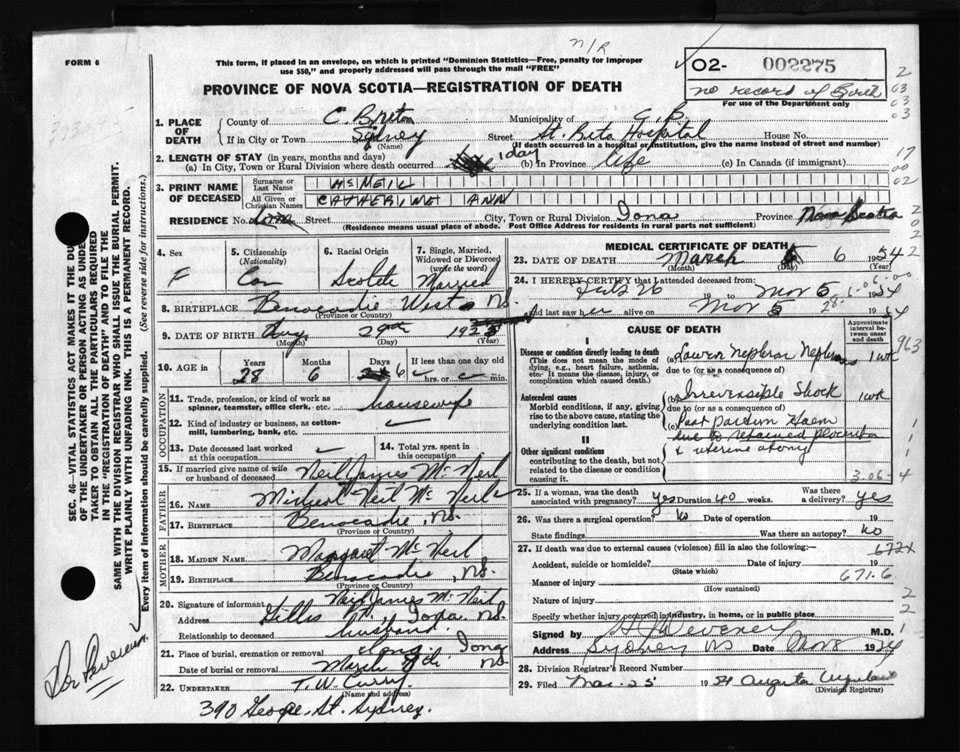 FORM 6
n/R
This form, if placed in an envelope, on which is printed "Dominion Statistics—Free, penalty for improper
use $50," and properly addressed will pass through the mail "FREE"
PROVINCE OF NOVA SCOTIA—REGISTRATION OF DEATH
O2- 002275
no record of Birth
For use of the Department only
1. PLACE OF DEATH
County of C. Breton Municipality of C. B
If in City or Town Sydney Street St. Rita Hospital House No.
(Name) (If death occurred in a hospital or institution, give the name instead of street and number)
2. LENGTH OF STAY (in years, months and days)
(a) In City, Town or Rural Division where death occurred 1 day (b) In Province life (c) In Canada (if immigrant)
3. PRINT NAME OF DECEASED
Surname or Last Name McNEIL
All Given or Christian Names CATHERINE ANN
RESIDENCE No. Iona Street City, Town or Rural Division Iona Province Nova Scotia
(Residence means usual place of abode. Post Office Address for residents in rural parts not sufficient)
4. Sex F
5. Citizenship (Nationality) Can
6. Racial Origin Scotch
7. Single, Married, Widowed or Divorced (write the word) Married
8. BIRTHPLACE Benacadie West NS.
(Province or Country)
9. DATE OF BIRTH Aug 29th 1925
(Month) (Day) (Year)
10. AGE in Years 28 Months 6 Days 6 If less than one day old hrs. or min.
OCCUPATION
11. Trade, profession, or kind of work as spinner, teamster, office clerk, etc. housewife
12. Kind of industry or business, as cotton-mill, lumbering, bank, etc.
13. Date deceased last worked at this occupation
14. Total yrs. spent in this occupation
15. If married give name of wife or husband of deceased Neil James McNeil
FATHER
16. NAME Michael Neil McNeil
17. BIRTHPLACE Benacadie, NS.
(Province or Country)
MOTHER
18. MAIDEN NAME Margaret McNeil
19. BIRTHPLACE Benacadie, NS.
(Province or Country)
20. Signature of informant Neil James McNeil
Address Gillis Pt., Iona. NS.
Relationship to deceased husband
21. Place of burial, cremation or removal Iona NS
Date of burial or removal March
22. UNDERTAKER T. W. Curry
(Name and address)
390 George St. Sydney.
MEDICAL CERTIFICATE OF DEATH
23. DATE OF DEATH March 6 1954
(Month) (Day) (Year)
24. I HEREBY CERTIFY that I attended deceased from:
Feb 26 19 to Mar 5 1954
and last saw her alive on Mar 5 1954
CAUSE OF DEATH
Approximate interval between onset and death
I
Disease or condition directly leading to death
(This does not mean the mode of dying, e.g., heart failure, asthenia, etc. It means the disease, injury, or complication which caused death.)
(a) Lower Nephron Nephrosis 1 wk
due to (or as a consequence of)
Antecedent causes
Morbid conditions, if any, giving rise to the above cause, stating the underlying condition last.
(b) Irreversible Shock 1 wk
due to (or as a consequence of)
(c) Post partum Haem
due to retained placenta
& uterine atony
II
Other significant conditions
contributing to the death, but not related to the disease or condition causing it.
3-06-4
25. If a woman, was the death associated with pregnancy? yes Duration 40 weeks. Was there a delivery? yes
26. Was there a surgical operation? No Date of operation 19
State findings Was there an autopsy? No
27. If death was due to external causes (violence) fill in also the following:—
672X
Accident, suicide or homicide? Date of injury 19
(State which)
Manner of injury 671-6
(How sustained)
Nature of injury
Specify whether injury occurred in industry, in home, or in public place
Signed by M.D.
Address Sydney NS Date Mar 8 1954
28. Division Registrar's Record Number
29. Filed Mar. 25 1954 Augusta
(Division Registrar)
SEC. 46—VITAL STATISTICS ACT MAKES IT THE DUTY
OF THE UNDERTAKER OR PERSON ACTING AS UNDER-
TAKER TO OBTAIN ALL THE PARTICULARS REQUIRED
IN THE "REGISTRATION OF DEATH" AND TO FILE THE
SAME WITH THE DIVISION REGISTRAR WHO SHALL ISSUE THE BURIAL PERMIT.
WRITE PLAINLY WITH UNFADING INK. THIS IS A PERMANENT RECORD.
Every item of information should be carefully supplied. (See reverse side for instructions.)